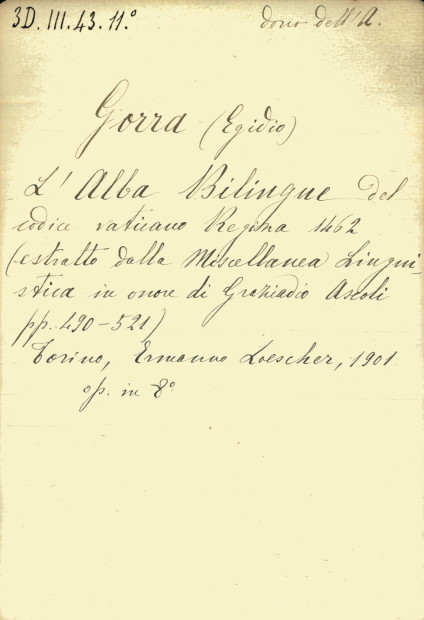 3D. III. 43. 11.°
dono dell'A.
Gorra (Egidio)
L' Alba Bilingue del
codice vaticano Regina 1462
(estratto dalla Miscellanea Lingui-
stica in onore di Graziadio Ascoli
pp. 490-521)
Torino, Ermanno Loescher, 1901
op. in 8°